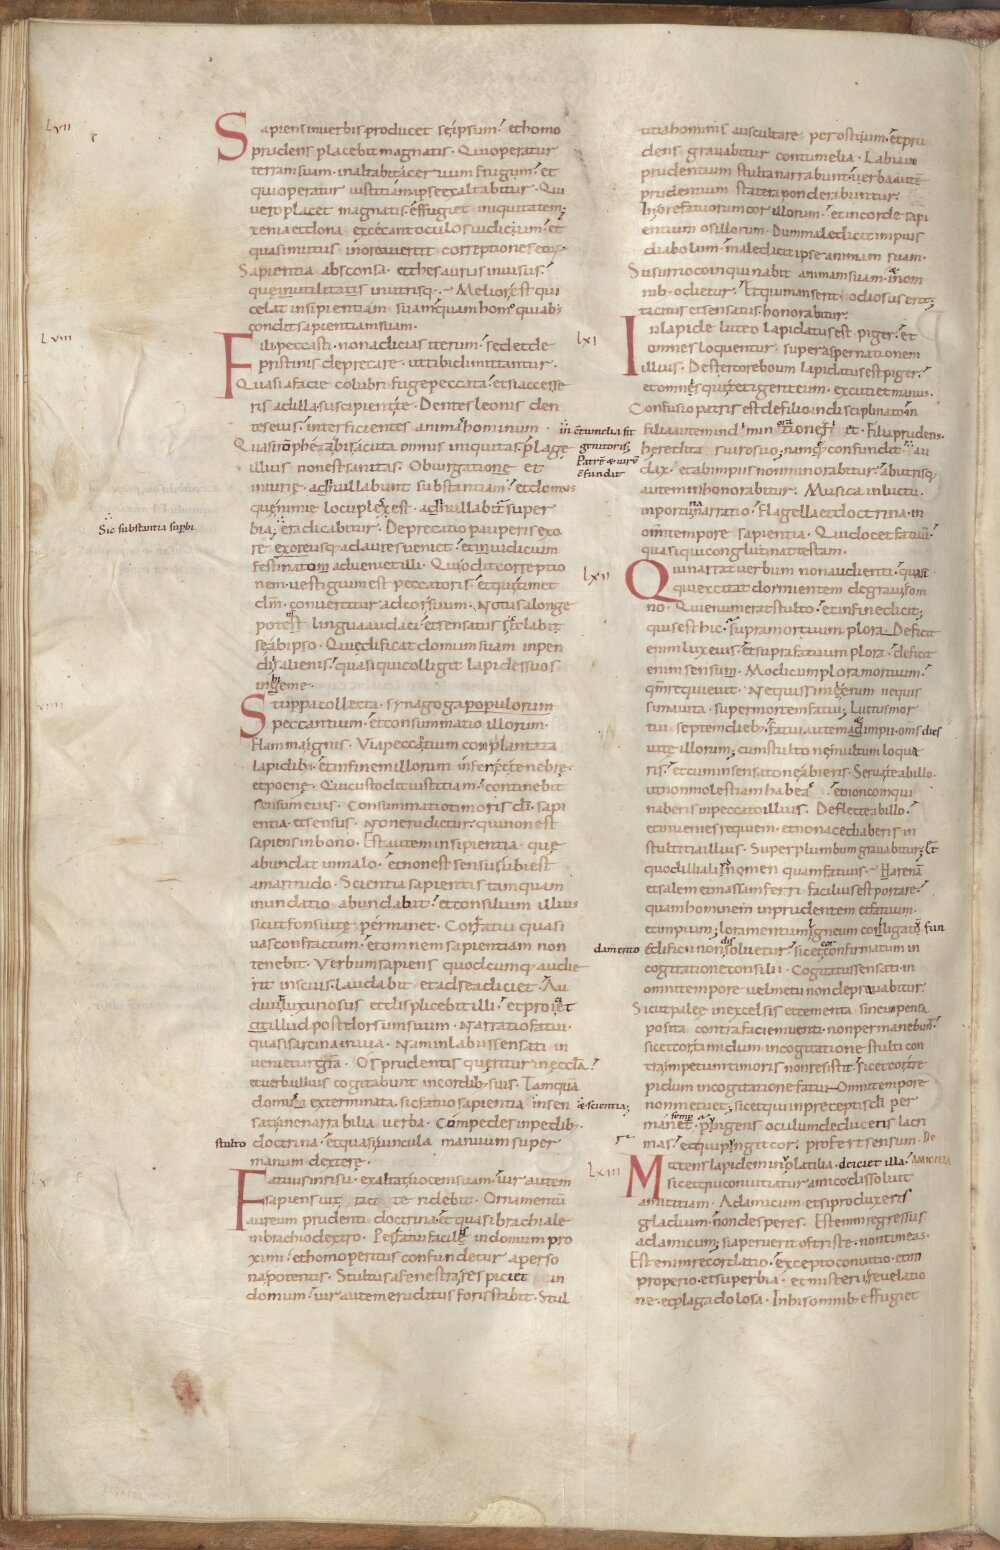 LVII
Sapiens in verbis producet seipsum. et homo
prudens placebit magnatis. Qui operatur
terram suam. inaltabit acervum frugum. et
qui operatur iustitiam. ipse exaltabitur. Qui
vero placet magnatis. effugiet iniquitatem;
xenia et dona excecant oculos iudicium. et
quasi mutus in ore avertit correptiones eorum.
Sapientia absconsa. et thesaurus invisus.
que utilitas in utrisque. Melior est qui
celat insipientiam suam. quam homo qui abs
condit sapientiam suam.
LVIII
Fili peccasti. non adicias iterum. sed et de
pristinis deprecare. ut tibi dimittantur.
Quasi a facie colubri fuge peccata. et si accesse
ris ad illa. suscipient te. Dentes leonis den
tes eius. interficientes animas hominum.
Quasi romphea bis acuta omnis iniquitas. plage
illius non est sanitas. Obiurgatione et
iniurie adnullabunt substantiam. et domus
que nimie locuplex est. adnullabitur super
Sic substantia superbi
bia. eradicabitur. Deprecatio pauperis exo
re usque ad aures veniet. et iudicium
festinato advenit illi. Qui odit correptio
nem. vestigium est peccatoris. et qui timet
dm. convertitur ad cor suum. Notus a longe
potens lingua audaci. et sensatus scit labi
se ab ipso. Qui edificat domum suam inpen
diis alienis. quasi qui colligit lapides suos
in hieme.
VIIII
Stuppa collecta. synagoga populorum
peccantium. et consummatio illorum.
flamma ignis. Via peccantium complantata
lapidib; et in fine illorum inferi et tenebre.
et poene. Qui custodit iustitiam. continebit
sensum eius. Consummatio timoris di. sapi
entia. et sensus. Non erudietur. qui non est
sapiens in bono. Est autem insipientia. que
abundat in malo. et non est sensus. ubi est
amaritudo. Scientia sapientis tamquam
inundatio abundabit. et consilium illius
sicut fons vite permanet. Cor fatui quasi
vas confractum. et omnem sapientiam non
tenebit. Verbum sapiens quodcumq; audie
rit inscius. laudabit et ad se adiciet. Au
divit luxuriosus et displicebit illi. et proiciet
illud post dorsum suum. Narratio fatui.
quasi sarcina in via. Nam in labiis sensati in
venietur gra. Os prudentis queritur in ecla.
et verbu illius cogitabunt in cordib; suis. Tamqua
domus exterminata. sic fatuo sapientia. insen
& scientia;
sati inenarrabilia verba. Compedes in pedib;
stulto doctrina. et quasi vincula manuum super
manum dextere.
Fatuus in risu. exaltat vocem suam. vir autem
sapiens vix tacite ridebit. Ornamentu
aureum prudenti doctrina. et quasi brachiale
in brachio dextro. Pes fatui facilis in domum pro
ximi. et homo peritus confundetur a perso
na potentis. Stultus a fenestra respiciet in
domum. vir autem eruditus foris stabit. Stul
titia hominis auscultare per ostium. et pru
dens gravabitur contumelia. Labia in
prudentium stulta narrabunt. verba aute
prudentium statera ponderabuntur.
In ore fatuorum cor illorum. et in corde sapi
entium os illorum. Dum maledicit impius
diabolum. maledicit ipse animam suam.
Susurro coinquinabit animam suam. & in om
nib; odietur. Et qui manserit. odiosus erit;
tacitus et sensatus. honorabitur.
LXI
In lapide luteo lapidatus est piger. et
omnes loquentur super aspernationem
illius. De stercore boum lapidatus est piger.
et omnis qui tetigerit eum. excutiet manus.
Confusio patris est de filio indisciplinato.
filia autem in deminoratione fiet. Filia prudens.
in contumelia fit
genitoris;
Patre & viru
cfundit
hereditas viro suo; nam que confundit. au
dax. et ab impiis non minorabitur. ab utrisq;
autem inhonorabitur. Musica in luctu.
inportuna narratio. Flagella et doctrina. in
omni tempore sapientia. Qui docet fatuum.
quasi qui conglutinat testam.
LXII
Qui narrat verbum non audienti. quasi
qui excitat dormientem de gravi som
no. Qui enumerat stulto. et in fine dicit;
quis est hic. Supra mortuum plora. Deficit
enim lux eius. et supra fatuum plora. deficit
enim sensum. Modicum plora mortuum.
qm requievit. Nequissimi enim nequis
sima vita. super mortem fatui; Luctus mor
tui septem dieb; fatui autem & impii. oms dies
vite illorum; cum stulto ne multum loqua
ris. et cum insensato ne abieris. Serva te ab illo.
ut non molestiam habeas. et non coinqui
naberis in peccato illius. Deflecte ab illo.
et invenies requiem. et non acediaberis in
stultitia illius. Super plumbum gravabitur; Et
quod illi aliud nomen quam fatuus. Harena
et salem et massam ferri facilius est portare.
quam hominem inprudentem et fatuum.
et impium; loramentum ligneum conligatu fun
damento edificii non dissolvetur. sic et cor confirmatum in
cogitatione consilii. Cogitatus sensati. in
omni tempore vel metu non depravabitur.
Sicut palee in excelsis et cementa sine inpensa
posita contra faciem venti. non permanebunt.
sic et cor timidum in cogitatione stulti con
tra impetum timoris non resistit. sic et cor tre
pidum in cogitatione fatui. Omni tempore
non metuet; sic et qui in preceptis di per
manet semp. pungens oculum deducet lacri
mas. et qui pungit cor. profert sensum. De
AMICITIA
LXIII
Mittens lapidem in volatilia. deiciet illa.
sic et qui convitiatur amico dissolvit
amicitiam. Ad amicum etsi produxeris
gladium. non desperes. Est enim regressus
ad amicum; si aperuerit os triste. non timeas.
Est enim recordatio. excepto convitio. et im
properio. et superbia. et misterii revelatio
ne. et plaga dolosa. In his omnib; effugiet